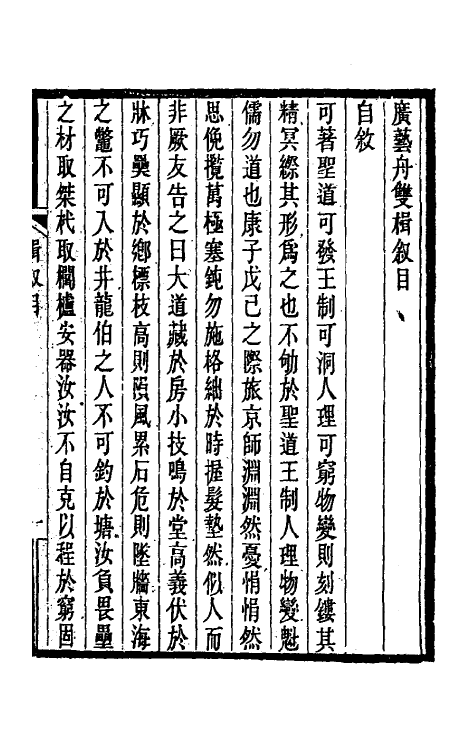 廣藝舟雙楫叙目
自敘
可著聖道可發王制可洞人理可窮物變則刻鏤其
精冥縩其形爲之也不劬於聖道王制人理物變魁
儒勿道也康子戊己之際旅京師淵淵然憂悁悁然
思俛攬萬極塞鈍勿施格絀於時握髮墊然似人而
非厥友告之曰大道藏於房小技鳴於堂高義伏於
牀巧奰顯於鄉標枝高則隕風累石危則墜牆東海
之鼈不可入於井龍伯之人不可釣於塘汝負畏壘
之材取桀杙取欂櫨安器汝汝不自克以程於窮固